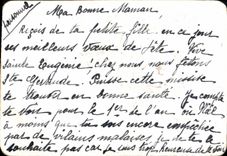 personnel
Ma Bonne Maman,
Reçois de ta petite fille en ce jour
ses meilleurs vœux de fête. Vive
sainte Eugénie ! chez nous nous fêtons
Ste Gertrude. Puisse cette missive
te trouver en bonne santé. je compte
te voir pour le 1er de l'an ou Noël
à moins que tu sois encore empêchée
par de vilains malaises, je ne te le
souhaite pas car je suis trop heureuse de te